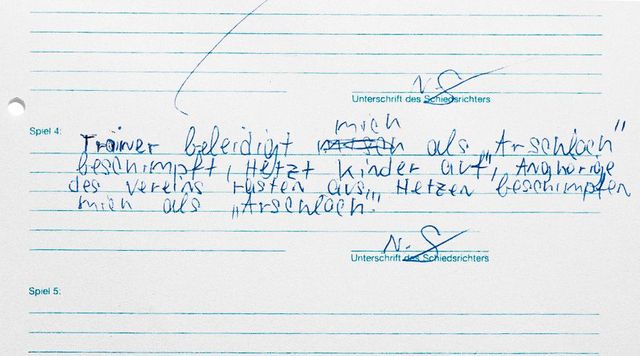 N. S
Unterschrift des Schiedsrichters
Spiel 4:
mich
Trainer beleidigt als "Arschloch"
beschimpft, Hetzt Kinder auf, Anghörige
des Vereins rasten aus, Hetzen beschimpfen
mich als „Arschloch."
N. S
Unterschrift des Schiedsrichters
Spiel 5: